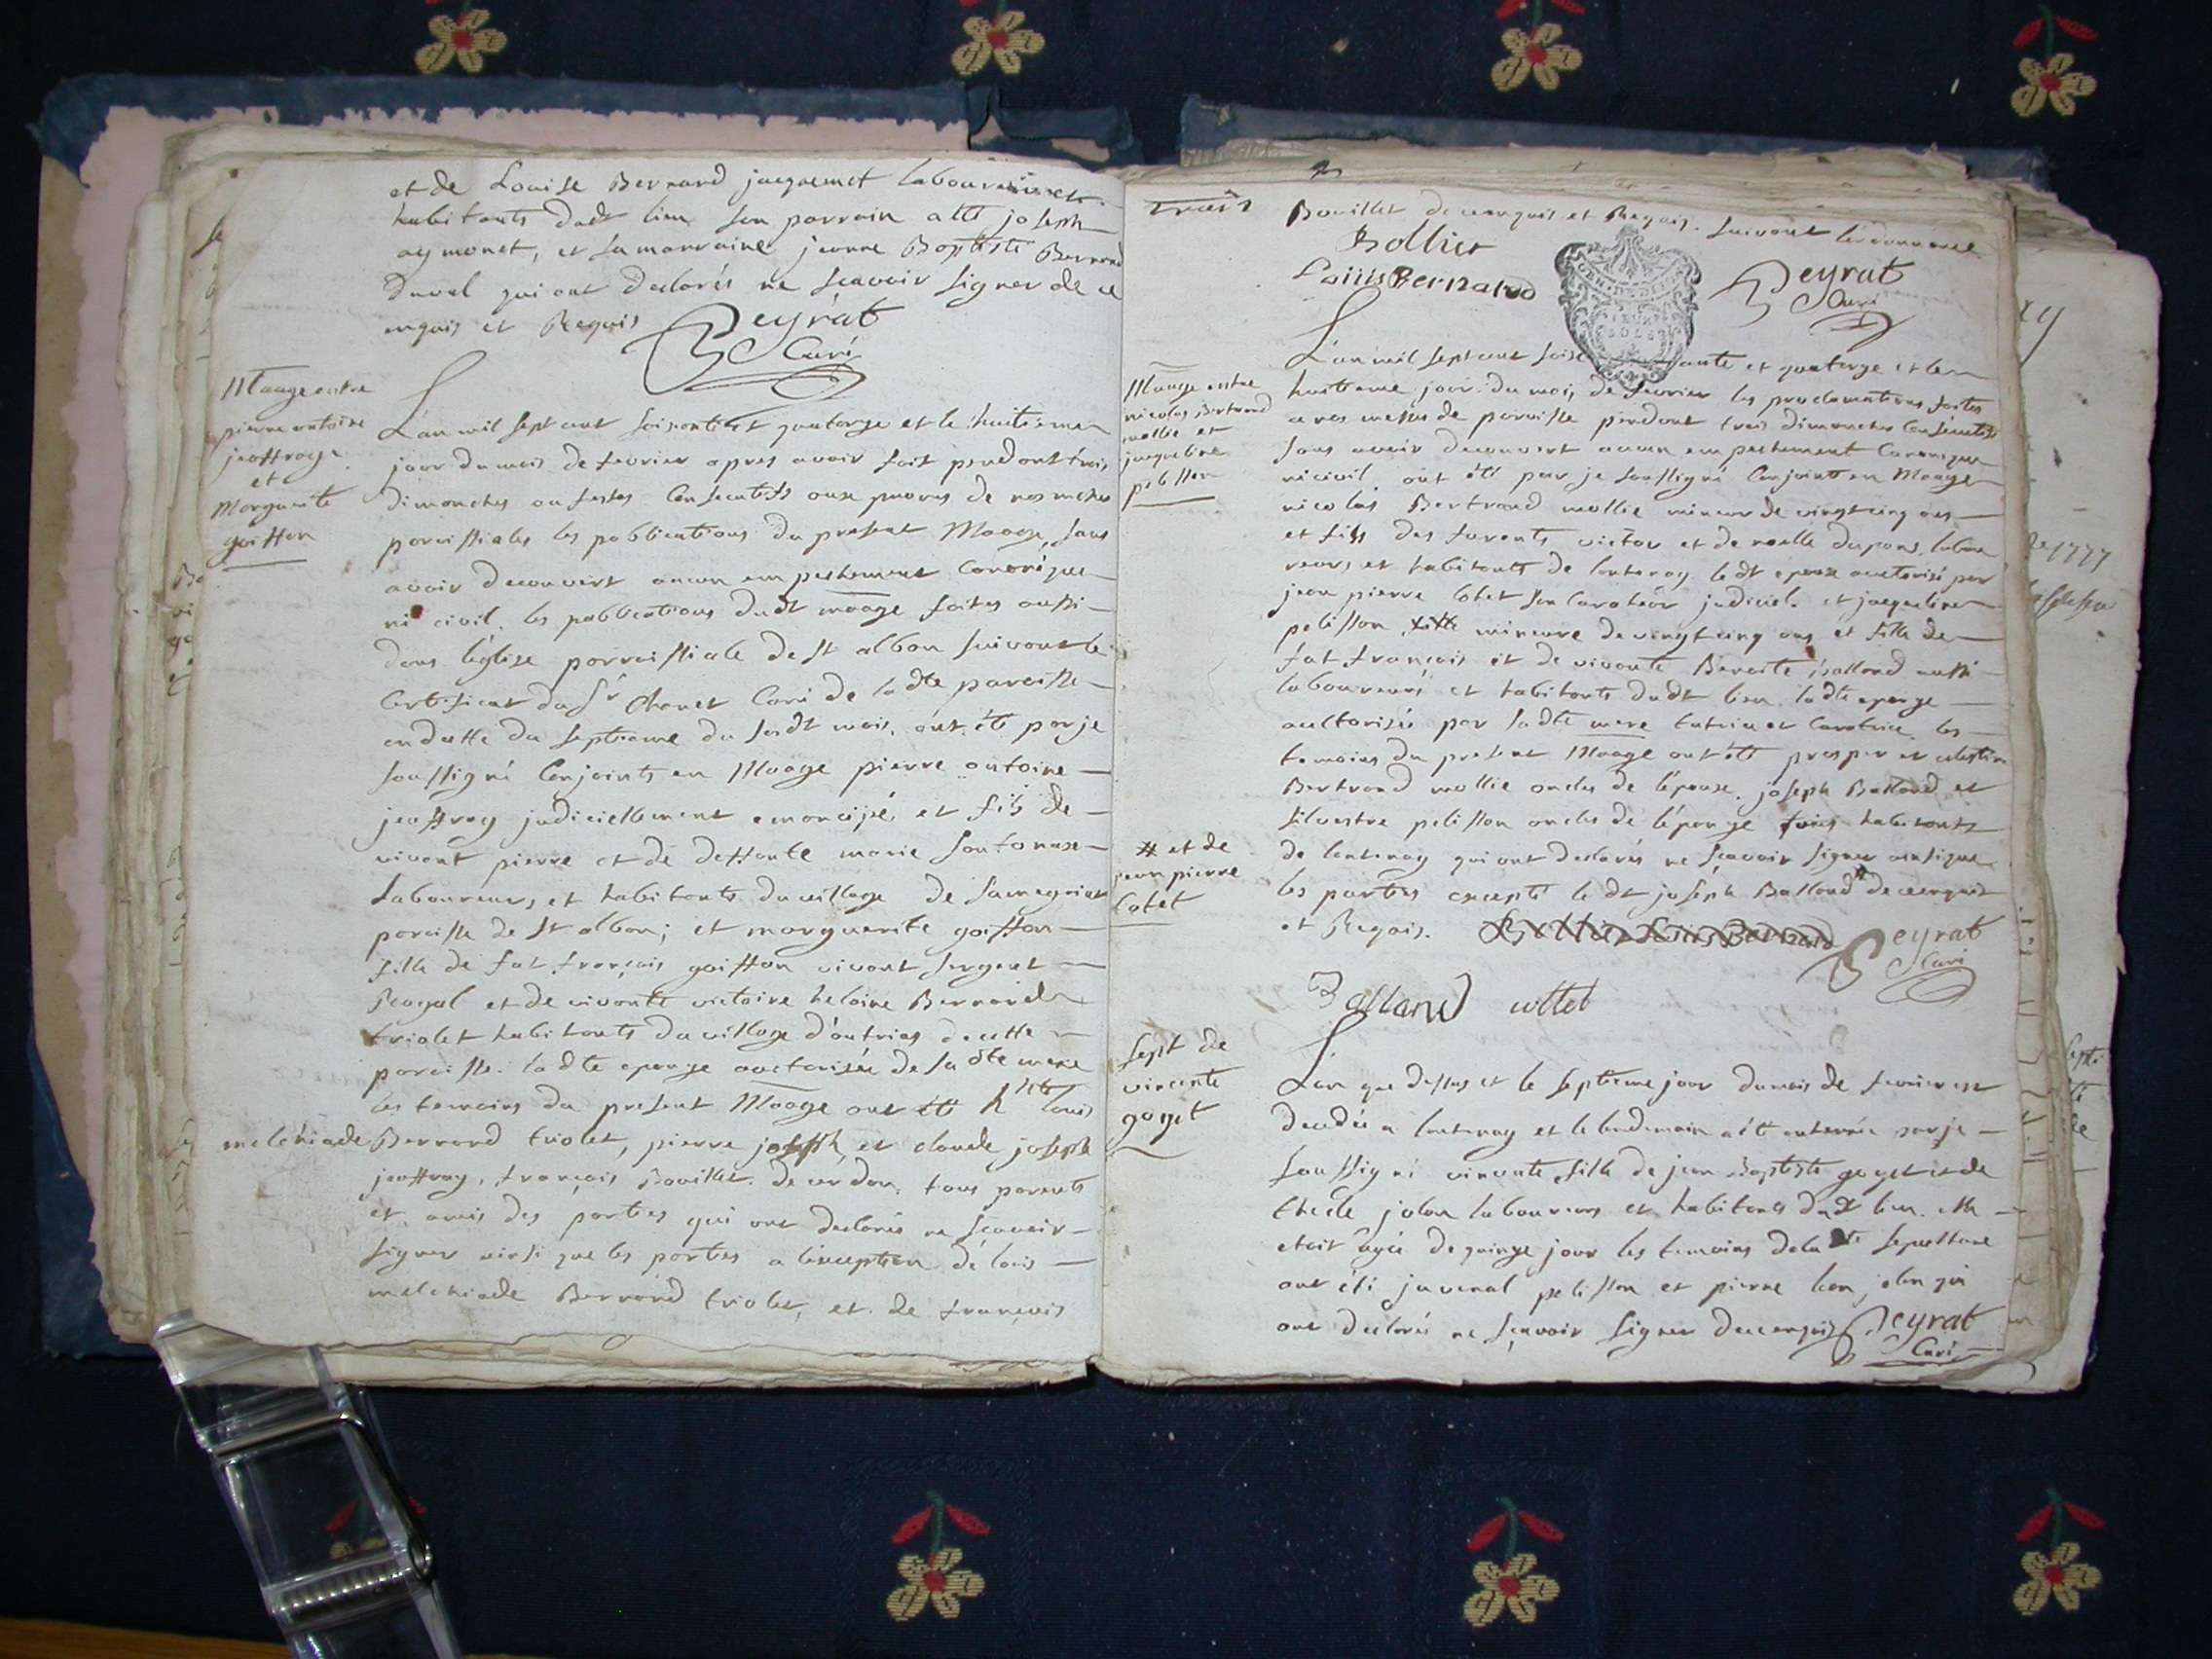 et de Louise Bernard jacquemet laboureurs et
habitants dudt lieu son parrain a été joseph
aymonet, et sa marraine jeanne Baptiste Bernard
duval qui ont declarés ne sçavoir signer de ce
enquis et Requis Peyrat
Curé
Maage entre
pierre antoine
jeoffray
et
Marguerite
goiffon
L'an mil sept cent soixante et quatorze et le huitieme
jour du mois de fevrier apres avoir fait pendant trois
dimanches ou festes Consecutifs aux prones de nos messes
paroissiales les publications du present Maage, sans
avoir decouvert aucun empeschement Canonique
ni civil. les publications dudt maage faites aussi
dans l'église parroissiale de st alban suivant le
Certificat du Sr Chanet Curé de ladte paroisse
en datte du septieme du susdt mois, ont été par je
soussigné Conjoints en Maage pierre antoine
jeoffray judiciellement emancipé et fils de
vivant pierre et de deffunte marie
Laboureurs et habitants du village de
paroisse de st alban; et marguerite goiffon
fille de fut françois goiffon vivant sergent
Royal et de vivante victoire helaine Bernard
triolet habitants du village d'outriaz de cette
paroisse. ladte epouze auctorisée de sadte mere
les temoins du present Maage ont été louis
melchiade Bernard triolet, pierre joseph et claude joseph
jeoffray, françois Bouillet de cerdon, tous parents
et amis des parties qui ont declarés ne sçavoir
signer ainsi que les parties a l'exception de louis
melchiade Bernard triolet, et de françois
trois
Bouillet de ce enquis et Requis. suivant l'ordonnance
Bollier
Louis Bernard
Peyrat
Curé
Maage entre
nicolas Bertrand
mollie et
jacqueline
pelisson
L'an mil sept cent soixante et quatorze et le
huitieme jour du mois de fevrier les proclamations faites
a nos messes de paroisse pendant trois dimanches Consecutifs
sans avoir decouvert aucun empeschement Canonique
ni civil, ont été par je soussigné Conjoints en Maage
nicolas Bertrand mollie mineur de vingt cinq ans
et fils des furents victor et de dupons, labou
reurs et habitants de lantenay. ledt epoux auctorisé par
jean pierre Cotet son Curateur judiciel. et jacqueline
pelisson mineure de vingt cinq ans et fille de
fut françois et de vivante Benoite Balland aussi
laboureurs et habitants dudt lieu. ladte epouze
auctorisée par sadte mere tutrice et Curatrice. les
temoins du present Maage ont été prosper et celestin
Bertrand mollie oncles de l'épouse. joseph Balland et
silvestre pelisson oncles de l'épouze tous habitants
de lantenay qui ont declarés ne sçavoir signer ainsi que
les parties excepté le dt joseph Balland # de ce enquis
# et de
jean pierre
Cotet
et Requis. Bollier Louis Bernard Peyrat
Curé
Balland cottet
sept de
vincente
goget
L'an que dessus et le septieme jour du mois de fevrier est
decedée a lantenay et le lendemain a été enterrée par je
soussigné vincente fille de jean Baptiste goget et de
thecle jolon laboureurs et habitants dudt lieu. elle
etoit agée de quinze jour les temoins de ladte sepulture
ont été juvenal pelisson et pierre leon jolon qui
ont declarés ne sçavoir signer de ce enquis Peyrat
Curé